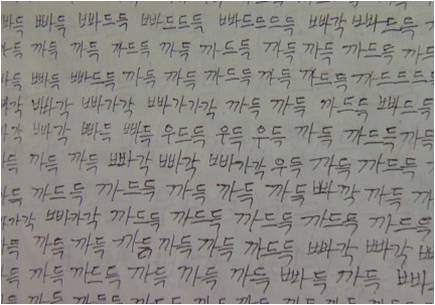 빠득 빠득 빠드득 빠드드득 빠드드드득 빠각 빠드득
까득 까득 까드득 까득 까드득 까득 까득 까드득 까드득
빠득 빠드득 까득 까득 까드득 까득 까드득 까드드드득
빠각 빠가각 빠가가각 까득 까득 까드득 빠드득
빠각 빠득 빠득 우드득 우득 우득 까득 까드득 까득
까득 까득 빠각 빠각 빠가각 우득 까득 까드득
까드득 까드득 까득 까득 까득 빠각 까득
빠가각 까드득 까드득 까드득 까드득 까드득
까득 까득 까득 까득 까득 까드득 빠각 빠각
까득 까드득 까득 까득 까득 빠득 까득